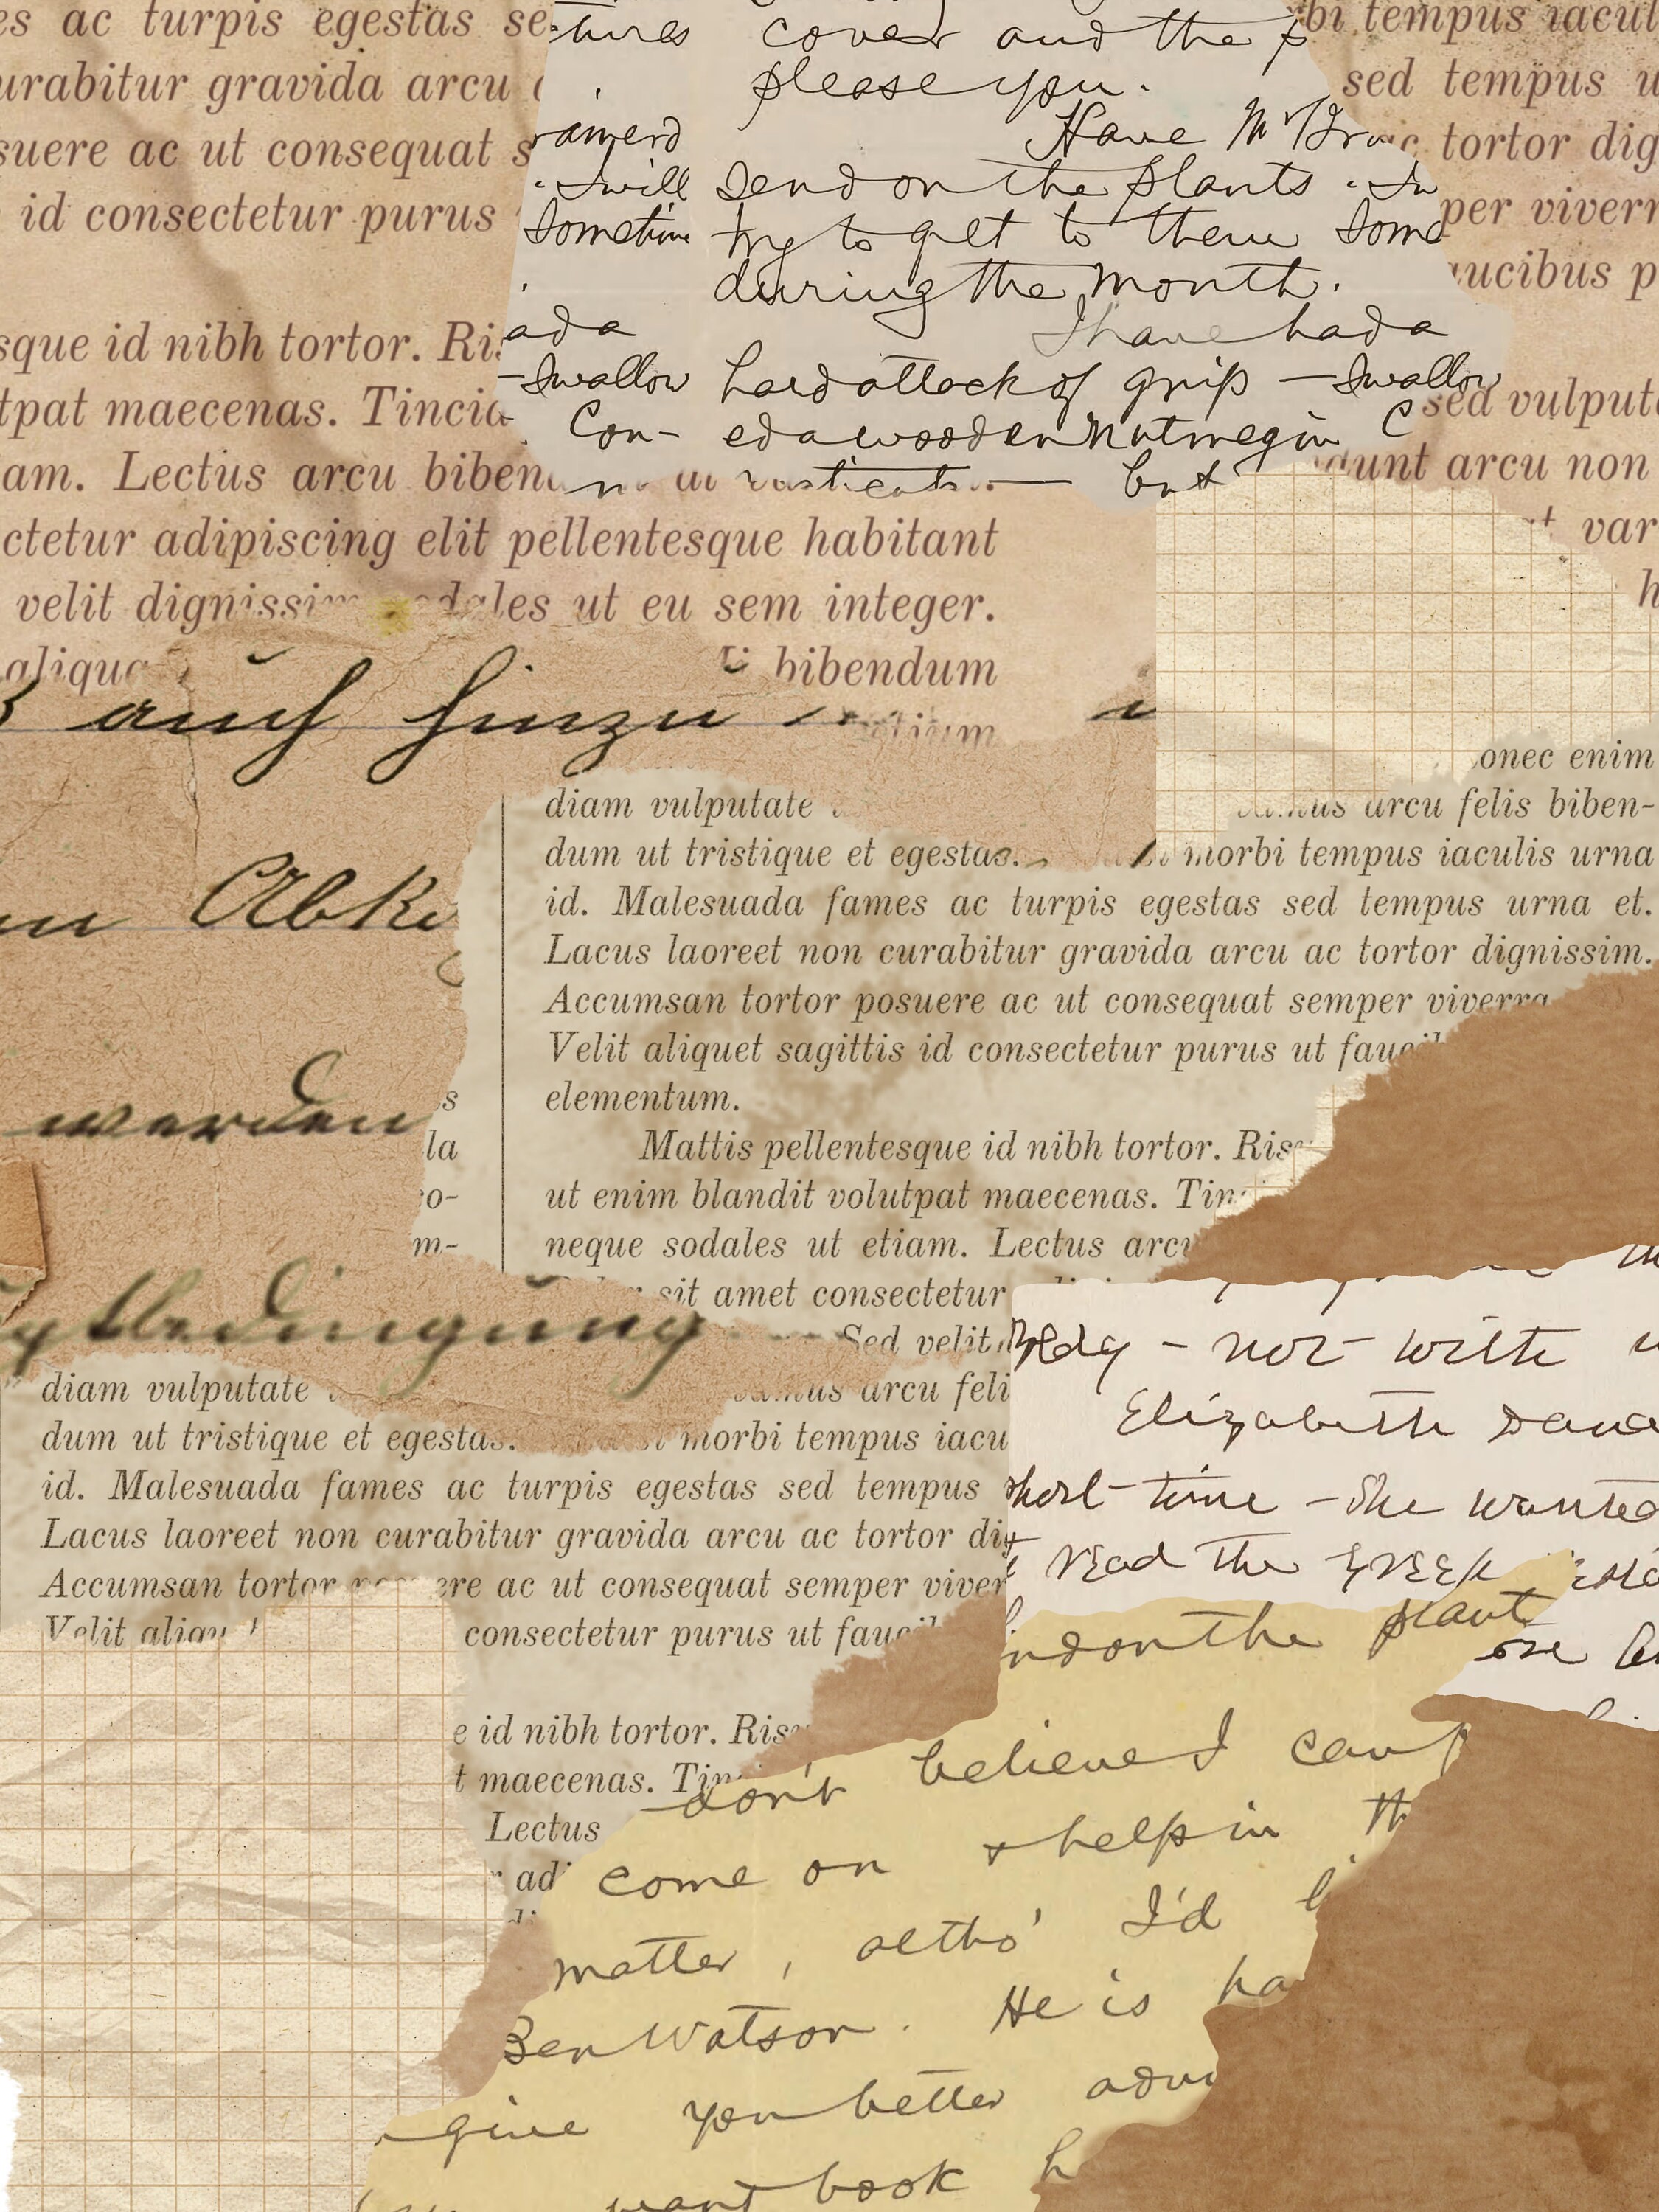 es ac turpis egestas se
urabitur gravida arcu
suere ac ut consequat s
id consectetur purus
sque id nibh tortor. Ris
tpat maecenas. Tincid
am. Lectus arcu biben
ctetur adipiscing elit pellentesque habitant
velit dignissim sodales ut eu sem integer.
aliqua
bibendum
tium
tures cover and the p
please you.
Have Mr
I will send on the plants . In
Sometime try to get to them Some
during the month.
ada I have had a
-Swallow hard attack of grip -Swallow
Con- ed a wooden nutmeg in C
but
bi tempus iacul
sed tempus u
ac tortor dig
per viverr
aucibus p
sed vulput
dunt arcu non
var
h
auch hinzu
Abk
werden
bedingung
s
la
co-
m-
onec enim
diam vulputate
mus arcu felis biben-
dum ut tristique et egestas. morbi tempus iaculis urna
id. Malesuada fames ac turpis egestas sed tempus urna et.
Lacus laoreet non curabitur gravida arcu ac tortor dignissim.
Accumsan tortor posuere ac ut consequat semper viverra
Velit aliquet sagittis id consectetur purus ut faucib
elementum.
Mattis pellentesque id nibh tortor. Risu
ut enim blandit volutpat maecenas. Tinc
neque sodales ut etiam. Lectus arcu
sit amet consectetur
Sed velit
diam vulputate
mus arcu feli
dum ut tristique et egestas. morbi tempus iacu
id. Malesuada fames ac turpis egestas sed tempus
Lacus laoreet non curabitur gravida arcu ac tortor dig
Accumsan tortor ere ac ut consequat semper viver
Velit aliqu consectetur purus ut faucib
e id nibh tortor. Risu
t maecenas. Tinc
Lectus
adi
Bldg - not with
Elizabeth
short time - She wanted
read the Greek
one
nd on the plant
don't believe I can
come on & help in th
matter, altho' I'd li
Ben Watson. He is ha
give you better advi
want book h